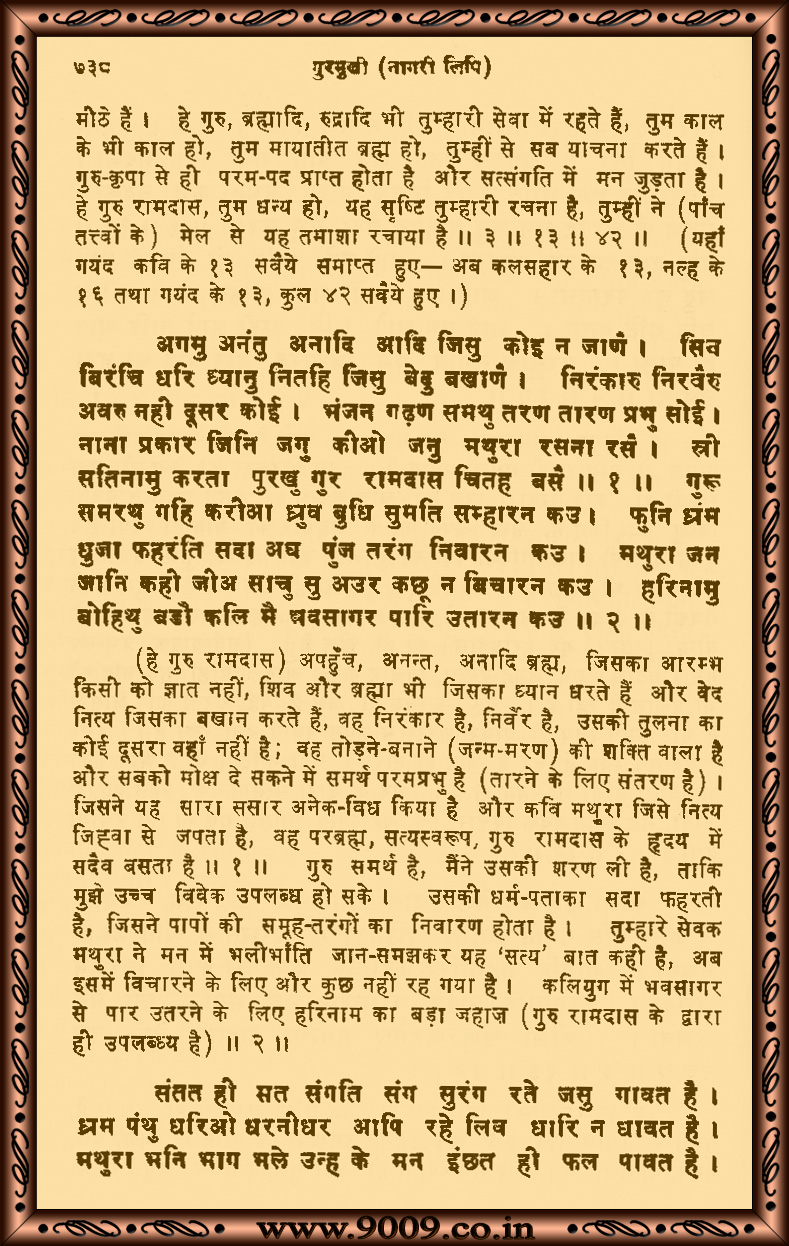 ७३८ गुरमुखी (नागरी लिपि)
मीठे हैं। हे गुरु, ब्रह्मादि, रुद्रादि भी तुम्हारी सेवा में रहते हैं, तुम काल
के भी काल हो, तुम मायातीत ब्रह्म हो, तुम्हीं से सब याचना करते हैं।
गुरु-कृपा से ही परम-पद प्राप्त होता है और सत्संगति में मन जुड़ता है।
हे गुरु रामदास, तुम धन्य हो, यह सृष्टि तुम्हारी रचना है, तुम्हीं ने (पांच
तत्त्वों के) मेल से यह तमाशा रचाया है॥ ३॥ १३॥ ४२॥ (यहाँ
गयंद कवि के १३ सवैये समाप्त हुए— अब कलसहार के १३, नल्ह के
१६ तथा गयंद के १३, कुल ४२ सवैये हुए।)
अगमु अनंतु अनादि आदि जिसु कोइ न जाणै। सिव
बिरंचि धरि ध्यानु नितहि जिसु बेदु बखाणै। निरंकारु निरवैरु
अवरु नही दूसर कोई। भंजन गढ़ण समथु तरण तारण प्रभु सोई।
नाना प्रकार जिनि जगु कीओ जनु मथुरा रसना रसै। स्री
सतिनामु करता पुरखु गुर रामदास चितह बसै॥ १॥ गुरू
समरथु गहि करीआ ध्रुव बुधि सुमति सम्हारन कउ। फुनि ध्रंम
धुजा फहरंति सदा अघ पुंज तरंग निवारन कउ। मथुरा जन
जानि कही जीअ साचु सु अउर कछू न बिचारन कउ। हरिनामु
बोहिथु बडौ कलि मै भवसागर पारि उतारन कउ॥ २॥
(हे गुरु रामदास) अपहुँच, अनन्त, अनादि ब्रह्म, जिसका आरम्भ
किसी को ज्ञात नहीं, शिव और ब्रह्मा भी जिसका ध्यान धरते हैं और वेद
नित्य जिसका बखान करते हैं, वह निरंकार है, निर्वैर है, उसकी तुलना का
कोई दूसरा वहाँ नहीं है; वह तोड़ने-बनाने (जन्म-मरण) की शक्ति वाला है
और सबको मोक्ष दे सकने में समर्थ परमप्रभु है (तारने के लिए संतरण है)।
जिसने यह सारा ससार अनेक-विध किया है और कवि मथुरा जिसे नित्य
जिह्वा से जपता है, वह परब्रह्म, सत्यस्वरूप, गुरु रामदास के हृदय में
सदैव बसता है॥ १॥ गुरु समर्थ है, मैंने उसकी शरण ली है, ताकि
मुझे उच्च विवेक उपलब्ध हो सके। उसकी धर्म-पताका सदा फहरती
है, जिसने पापों की समूह-तरंगों का निवारण होता है। तुम्हारे सेवक
मथुरा ने मन में भलीभाँति जान-समझकर यह ‘सत्य’ बात कही है, अब
इसमें विचारने के लिए और कुछ नहीं रह गया है। कलियुग में भवसागर
से पार उतरने के लिए हरिनाम का बड़ा जहाज़ (गुरु रामदास के द्वारा
ही उपलब्ध्य है)॥ २॥
संतत ही सत संगति संग सुरंग रते जसु गावत है।
ध्रम पंथु धरिओ धरनीधर आपि रहे लिव धारि न धावत है।
मथुरा भनि भाग भले उन्ह के मन इंछत ही फल पावत है।
www.9009.co.in